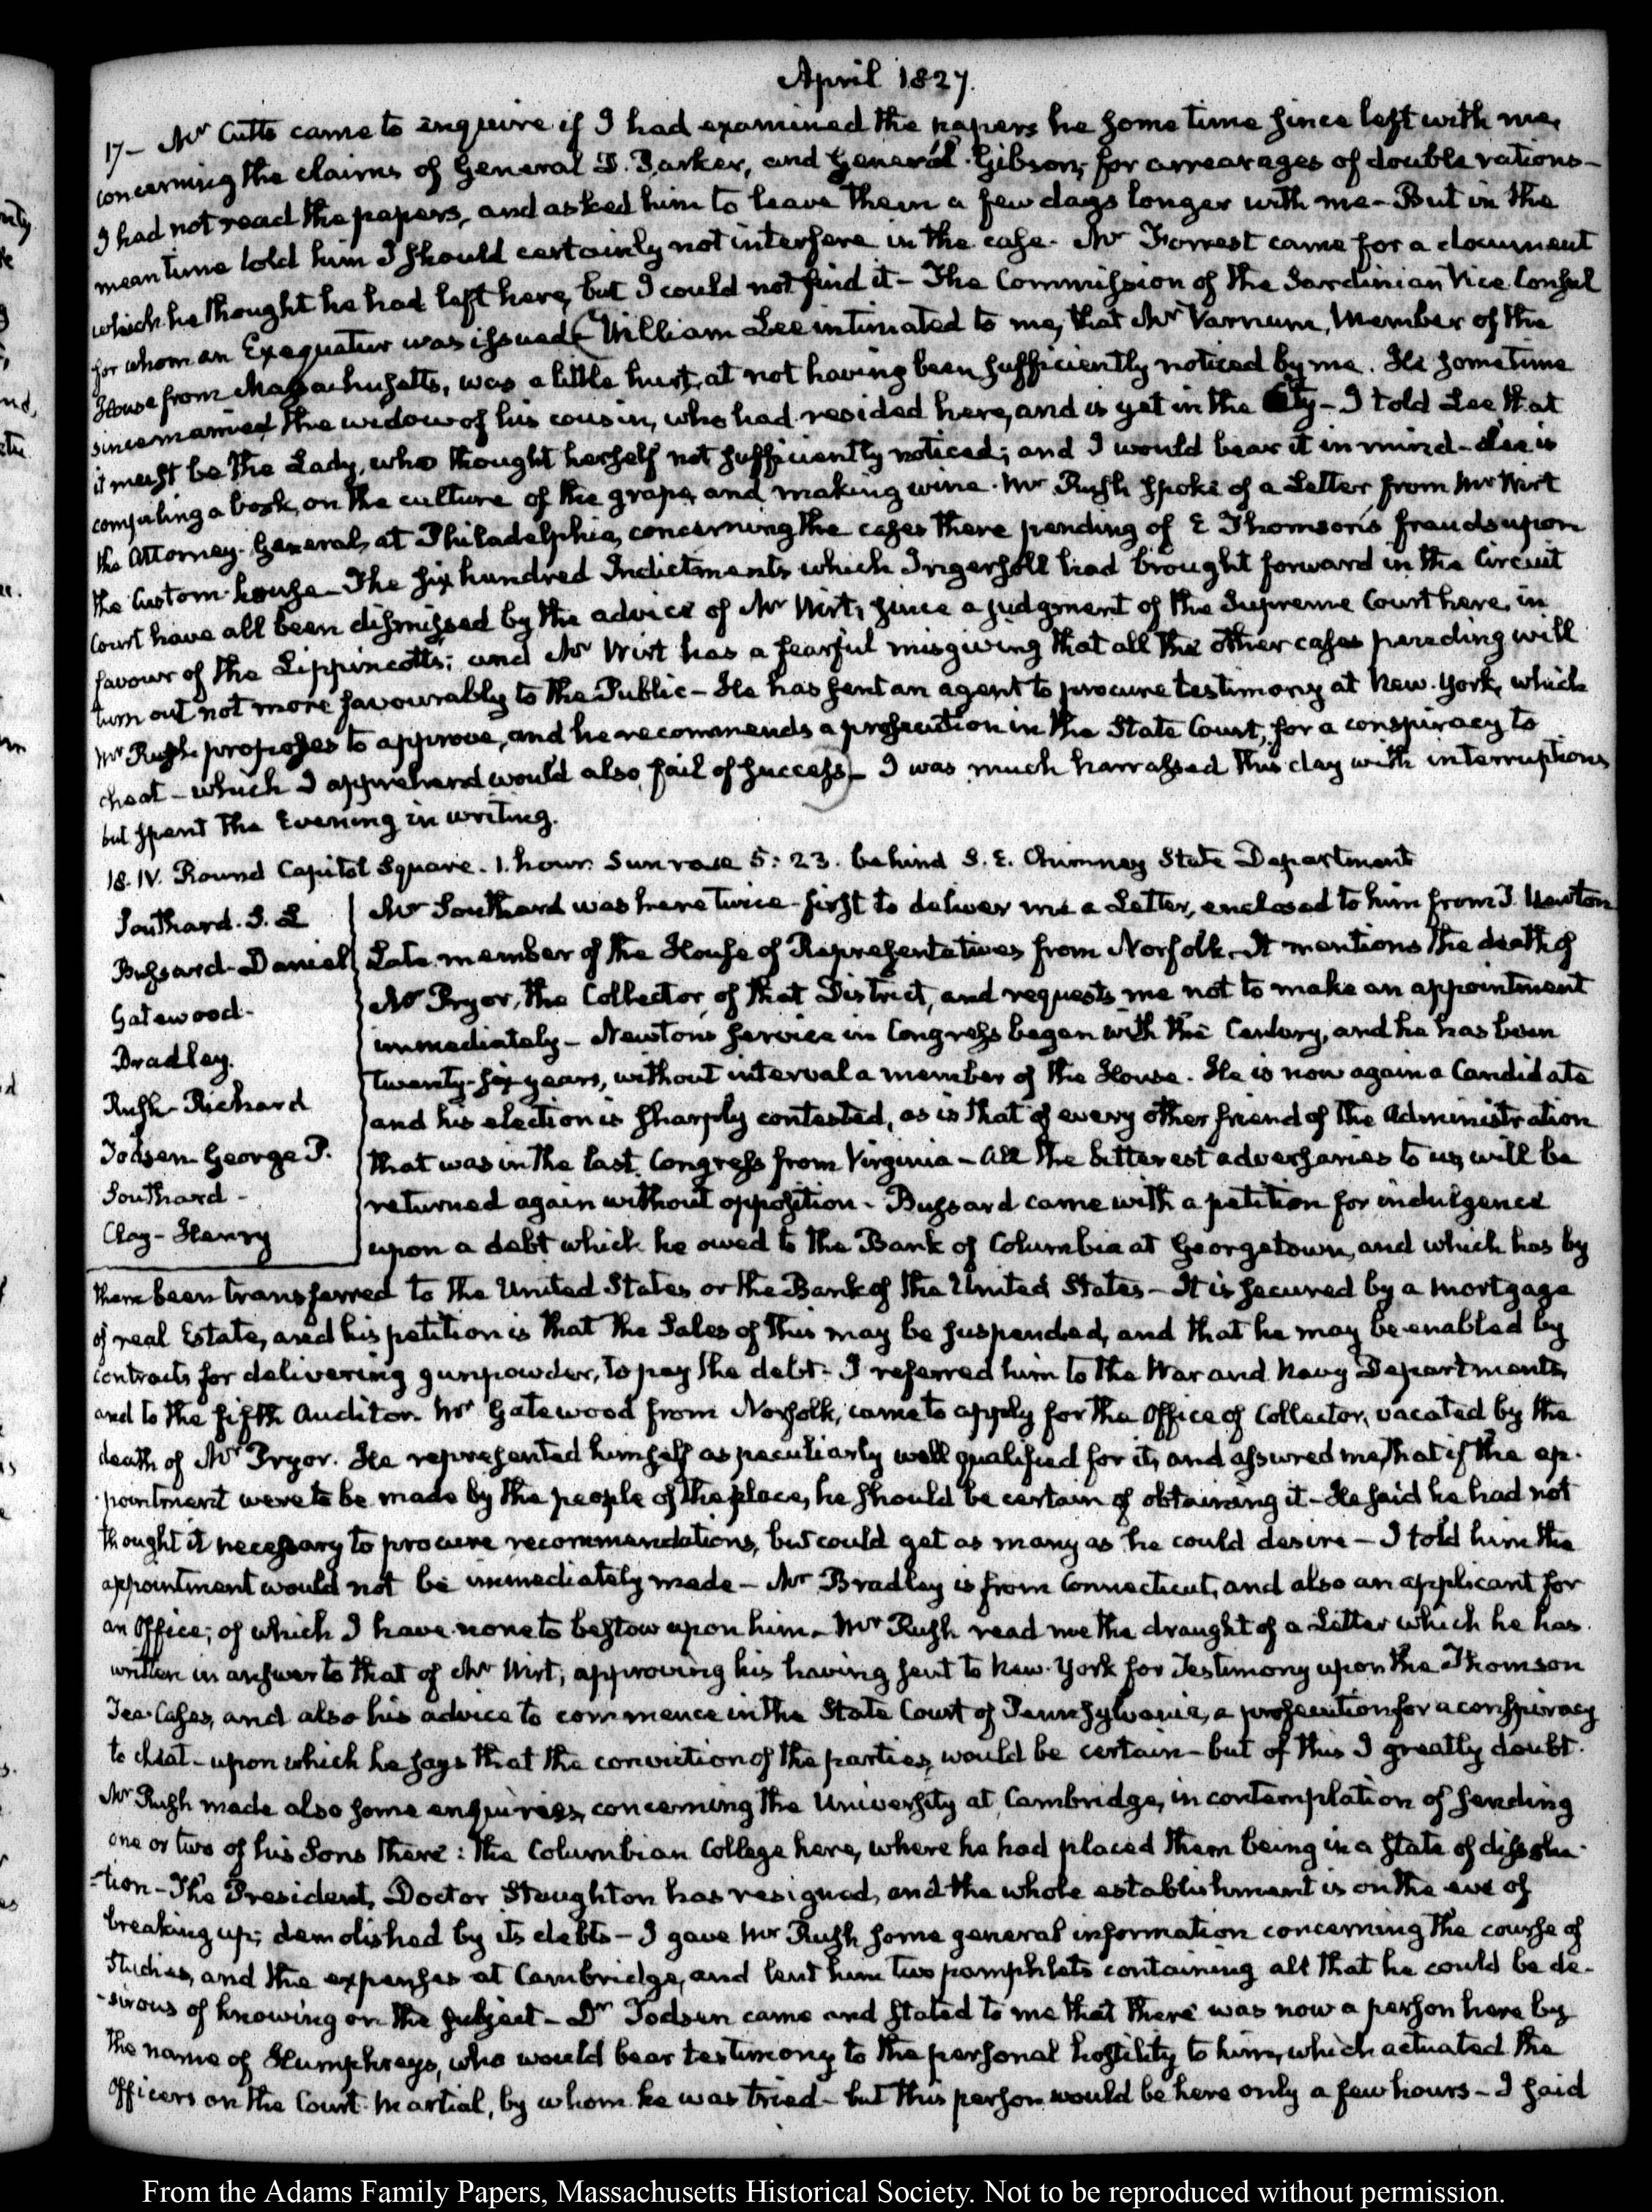 April 1827.
17- Mr Cutts came to enquire if I had examined the papers he some time since left with me,
concerning the claims of General D. Parker, and General Gibson, for arrearages of double rations-
I had not read the papers, and asked him to leave them a few days longer with me- But in the
mean time told him I should certainly not interfere in the case- Mr Forrest came for a document
which he thought he had left here, but I could not find it- The Commission of the Sardinian Vice Consul
for whom an Exequatur was issued (William Lee intimated to me, that Mr Varnum, Member of the
House from Massachusetts, was a little hurt, at not having been sufficiently noticed by me. He sometime
since married the widow of his cousin, who had resided here, and is yet in the City- I told Lee that
it must be the Lady, who thought herself not sufficiently noticed; and I would bear it in mind- Lee is
compiling a book, on the culture of the grape, and making wine. Mr Rush spoke of a Letter from Mr Wirt
the Attorney-General, at Philadelphia, concerning the cases there pending of E Thomson's frauds upon
the Custom-house- The six hundred Indictments which Ingersoll had brought forward in the Circuit
Court have all been dismissed by the advice of Mr Wirt, since a judgment of the Supreme Court here, in
favour of the Lippincotts; and Mr Wirt has a fearful misgiving that all the other cases pending will
turn out not more favourably to the Public- He has sent an agent to procure testimony at New-York, which
Mr Rush proposes to approve, and he recommends a prosecution in the State Court, for a conspiracy to
cheat- which I apprehend would also fail of success)- I was much harrassed this day with interruptions
but spent the Evening in writing.
18. IV. Round Capitol Square. 1. hour. Sun rose 5:23. behind S. E. Chimney State Department
Southard. S. L
Bussard- Daniel
Gatewood-
Bradley.
Rush- Richard
Todsen- George P.
Southard-
Clay- Henry
Mr Southard was here twice- first to deliver me a Letter, enclosed to him from T. Newton
late member of the House of Representatives from Norfolk- It mentions the death of
Mr Pryor, the Collector of that District, and requests me not to make an appointment
immediately- Newton's service in Congress began with the Century, and he has been
twenty-six years, without interval a member of the House. He is now again a Candidate
and his election is sharply contested, as is that of every other friend of the Administration
that was in the last Congress from Virginia- All the bitterest adversaries to us, will be
returned again without opposition- Bussard came with a petition for indulgence
upon a debt which he owed to the Bank of Columbia at Georgetown, and which has by
them been transferred to the United States or the Bank of the United States- It is secured by a mortgage
of real Estate, and his petition is that the Sales of this may be suspended, and that he may be enabled by
contracts for delivering gunpowder, to pay the debt- I referred him to the War and Navy Departments,
and to the fifth Auditor. Mr Gatewood from Norfolk, came to apply for the Office of Collector, vacated by the
death of Mr Pryor. He represented himself as peculiarly well qualified for it, and assured me, that if the ap-
-pointment were to be made by the people of the place, he should be certain of obtaining it- He said he had not
thought it necessary to procure recommendations, but could get as many as he could desire- I told him the
appointment would not be immediately made- Mr Bradley is from Connecticut, and also an applicant for
an Office; of which I have none to bestow upon him- Mr Rush read me the draught of a Letter which he has
written in answer to that of Mr Wirt; approving his having sent to New-York for Testimony upon the Thomson
Tea-Cases, and also his advice to commence in the State Court of Pennsylvania, a prosecution for a conspiracy
to cheat- upon which he says that the conviction of the parties, would be certain- but of this I greatly doubt.
Mr Rush made also some enquiries, concerning the University at Cambridge, in contemplation of sending
one or two of his Sons there: the Columbian College here, where he had placed them being in a state of dissolu-
-tion- The President, Doctor Staughton has resigned, and the whole establishment is on the eve of
breaking up; demolished by its debts- I gave Mr Rush some general information concerning the course of
Studies, and the expenses at Cambridge, and lent him two pamphlets containing all that he could be de-
-sirous of knowing on the subject- Dr Todsen came and stated to me that there was now a person here by
the name of Humphreys, who would bear testimony to the personal hostility to him, which actuated the
Officers on the Court-Martial, by whom he was tried- but this person would be here only a few hours- I said
From the Adams Family Papers, Massachusetts Historical Society. Not to be reproduced without permission.